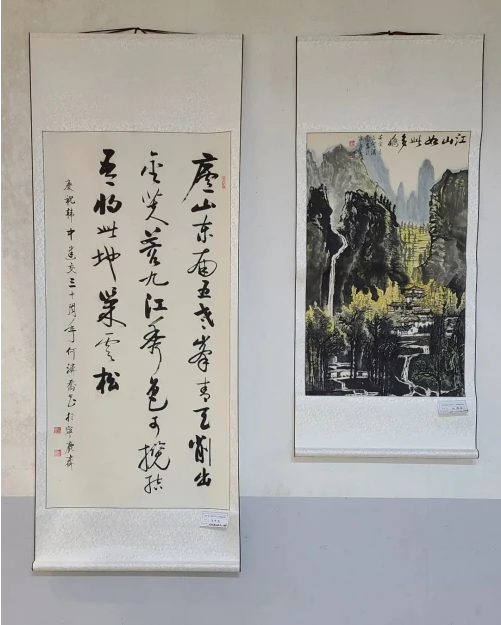 廬山东南五老峯青天削出
金芙蓉九江秀色可揽结
吾将此地巢云松
庆祝韩中建交三十周年何
江山如此多娇